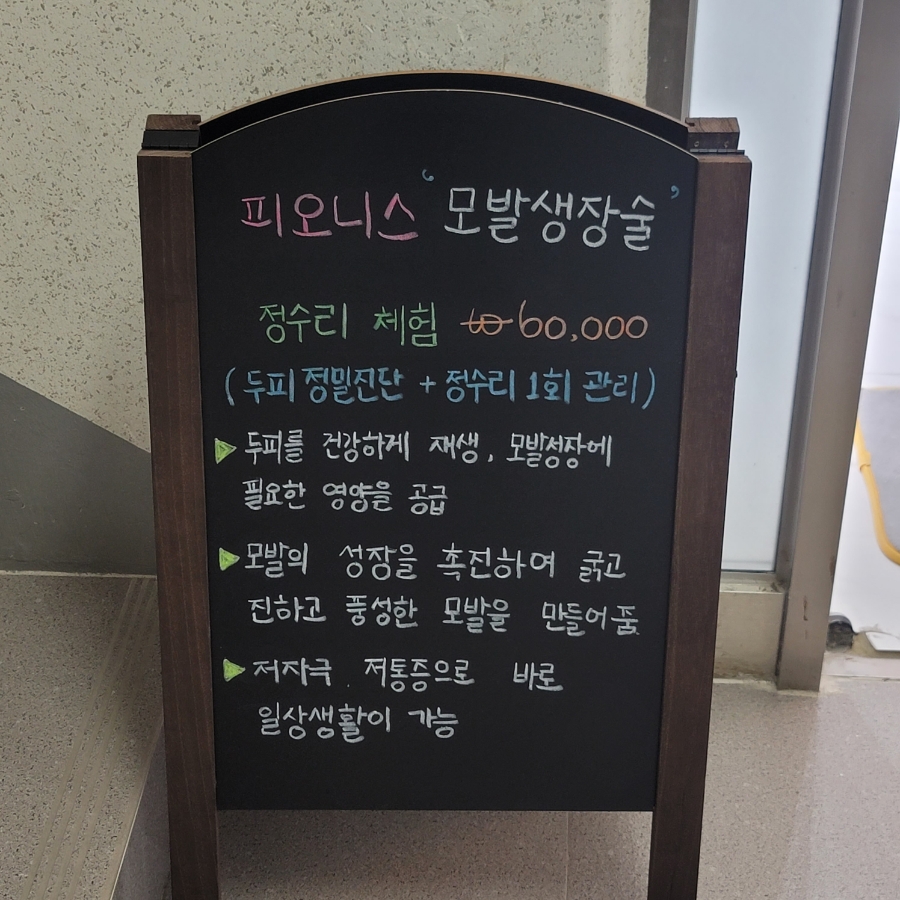 피오니스 '모발생장술'
정수리 체험 ₩60,000
(두피 정밀진단 + 정수리 1회 관리)
▶두피를 건강하게 재생, 모발성장에
필요한 영양을 공급
▶모발의 성장을 촉진하여 굵고
진하고 풍성한 모발을 만들어줌
▶저자극. 저통증으로 바로
일상생활이 가능